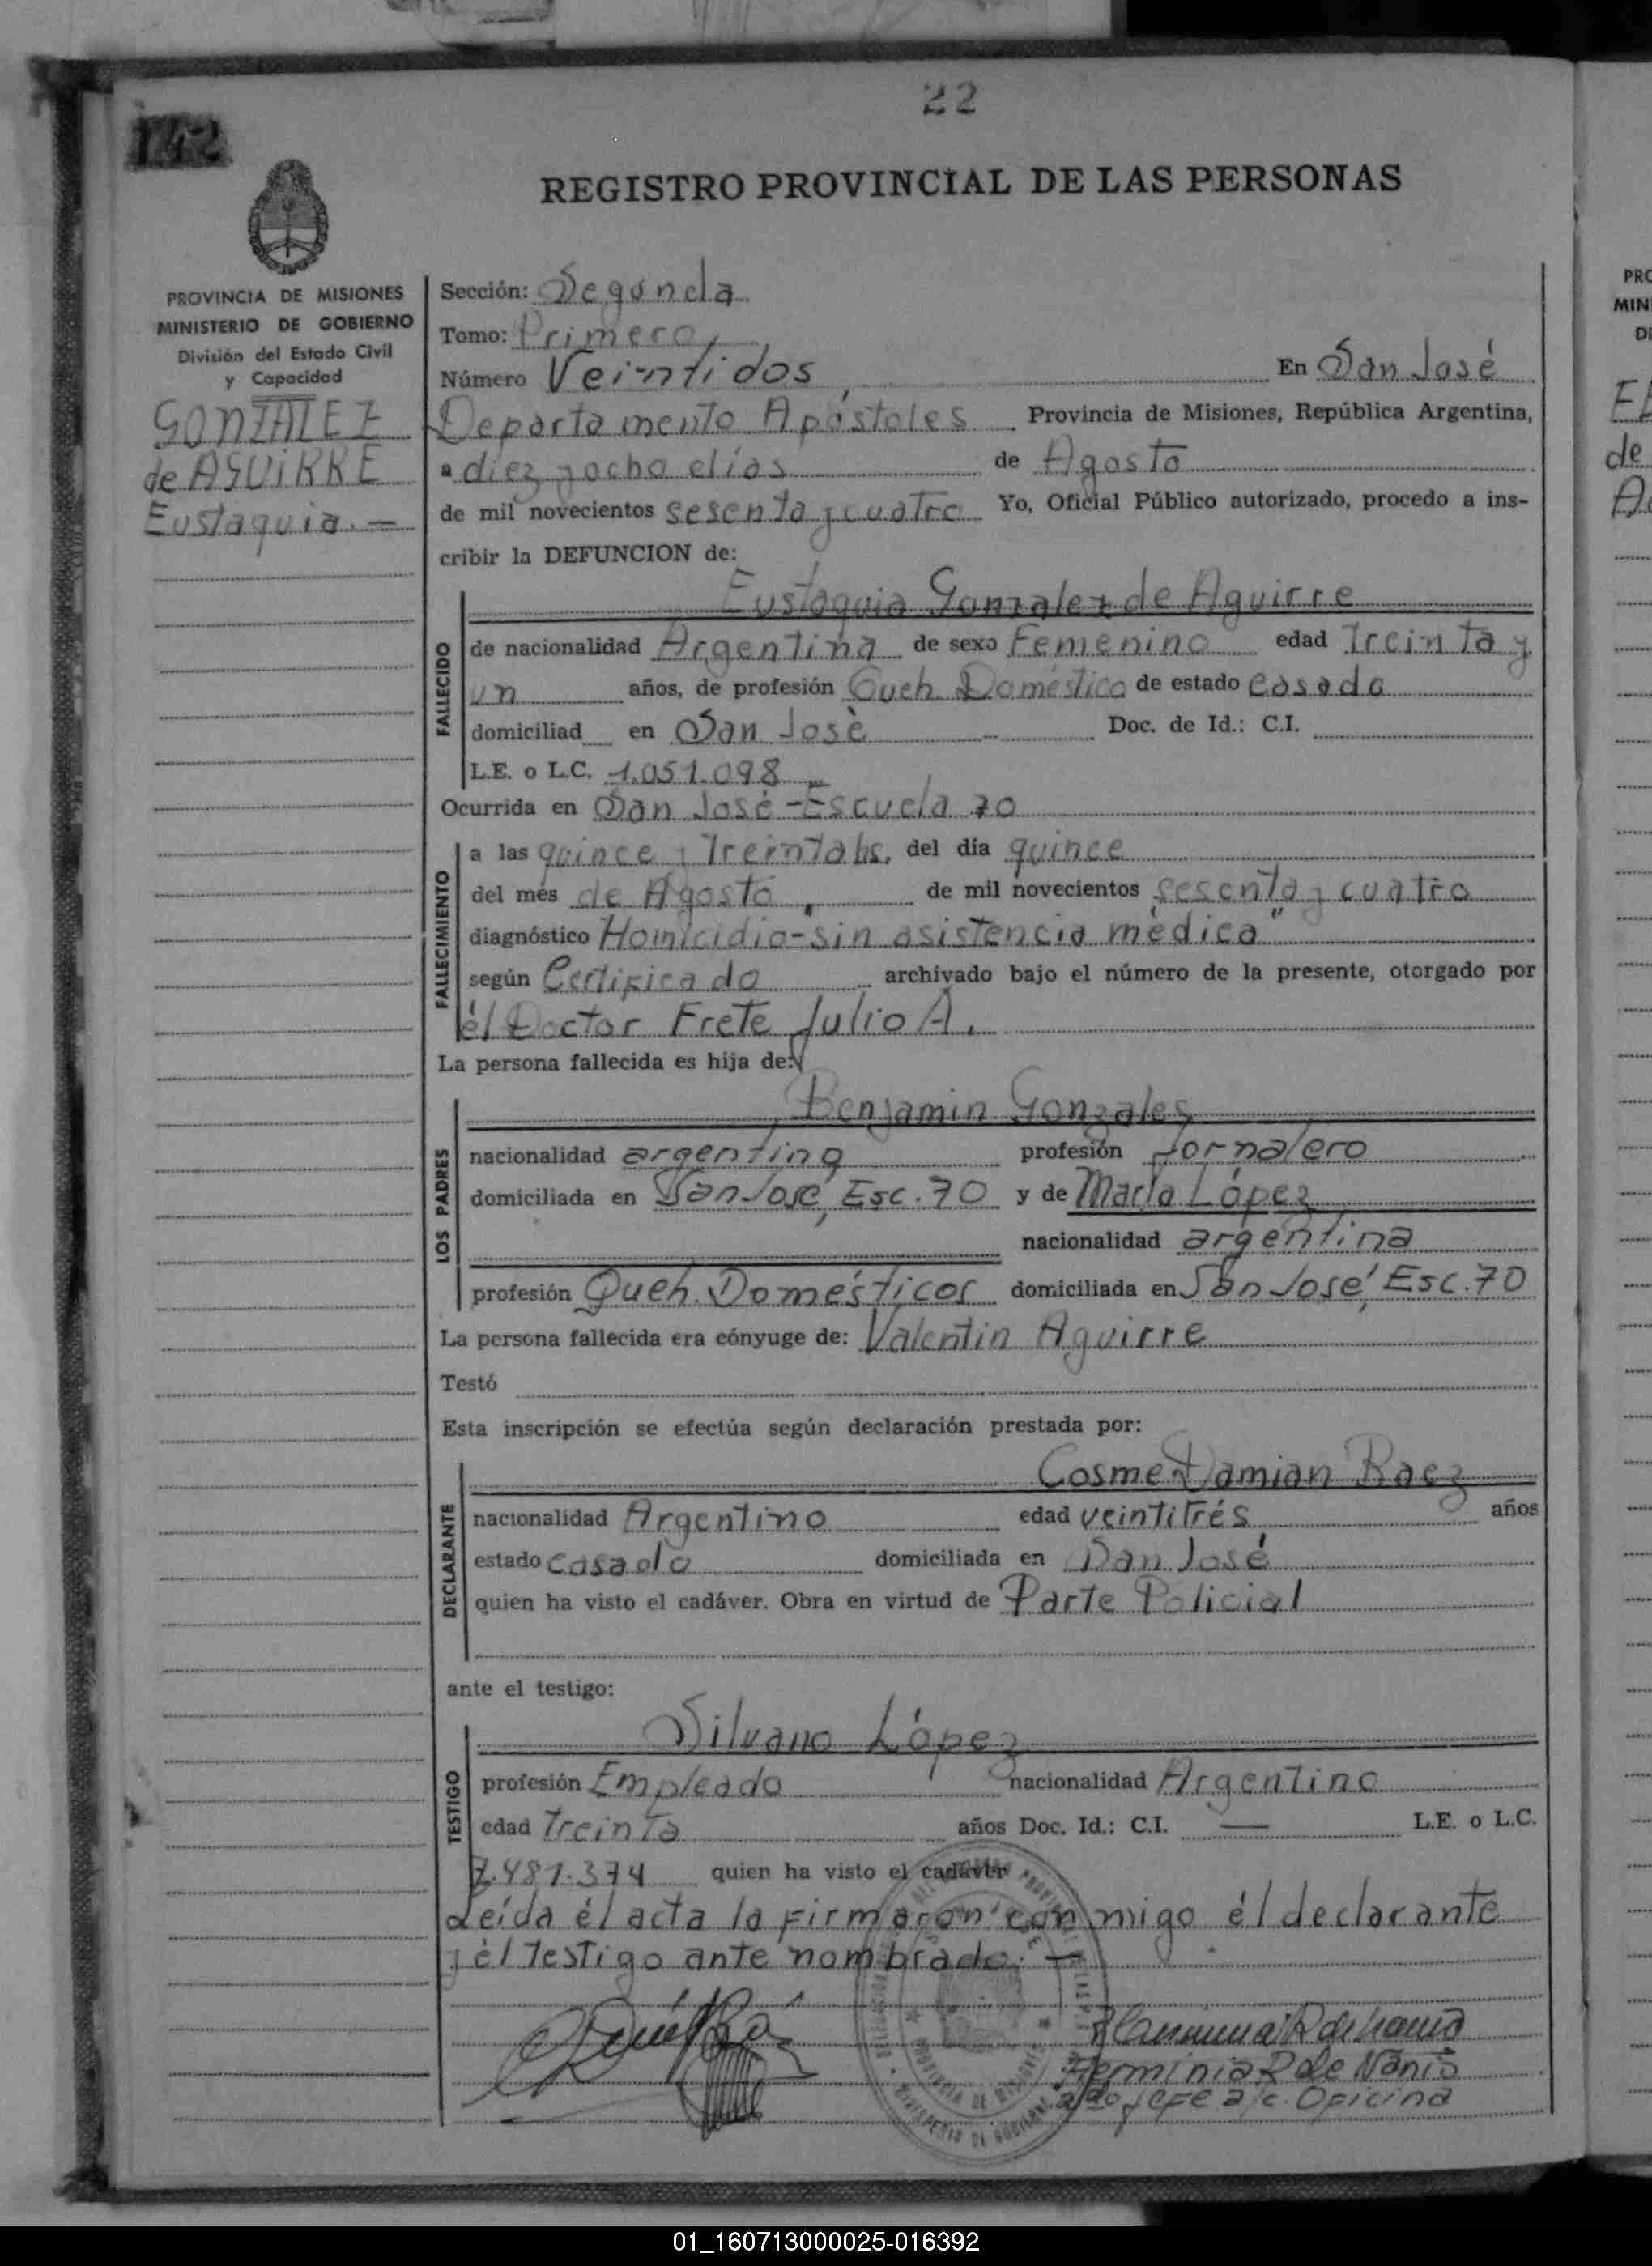 22
142
REGISTRO PROVINCIAL DE LAS PERSONAS
PROVINCIA DE MISIONES
MINISTERIO DE GOBIERNO
División del Estado Civil
y Capacidad
GONZALEZ
de AGUIRRE
Eustaquia. —
Sección: Segunda
Tomo: Primero,
Número Veintidos, En San José
Departamento Apóstoles Provincia de Misiones, República Argentina,
a diez y ocho días de Agosto
de mil novecientos sesenta y cuatro Yo, Oficial Público autorizado, procedo a ins-
cribir la DEFUNCION de:
Eustaquia Gonzalez de Aguirre
FALLECIDO
de nacionalidad Argentina de sexo Femenino edad Treinta y
un años, de profesión Queh. Doméstico de estado Casada
domiciliad en San Josè Doc. de Id.: C.I.
L.E. o L.C. 1.051.098 —
Ocurrida en San José - Escuela 70
FALLECIMIENTO
a las quince y Treinta hs. del día quince
del més de Agosto, de mil novecientos sesenta y cuatro
diagnóstico Homicidio - sin asistencia médica"
según Certificado archivado bajo el número de la presente, otorgado por
él Doctor Frete Julio A.
La persona fallecida es hija de:
Benjamin Gonzales
LOS PADRES
nacionalidad argentina profesión Jornalero
domiciliada en San José, Esc. 70 y de María López
nacionalidad argentina
profesión Queh. Domésticos domiciliada en San José, Esc. 70
La persona fallecida era cónyuge de: Valentin Aguirre
Testó
Esta inscripción se efectúa según declaración prestada por:
Cosme Damian Baez
DECLARANTE
nacionalidad Argentino edad veintitrés años
estado casado domiciliada en San José
quien ha visto el cadáver. Obra en virtud de Parte Policial
ante el testigo:
Silvano López
TESTIGO
profesión Empleado nacionalidad Argentino
edad Treinta años Doc. Id.: C.I. — L.E. o L.C.
7.481.374 quien ha visto el cadáver
Leída él acta la firmaron conmigo él declarante
y él Testigo ante nombrado. —
Herminia R de Nanio
ado Jefe a/c. Oficina
PROVINCIA DE MISIONES
MINISTERIO DE GOBIERNO
01_160713000025-016392